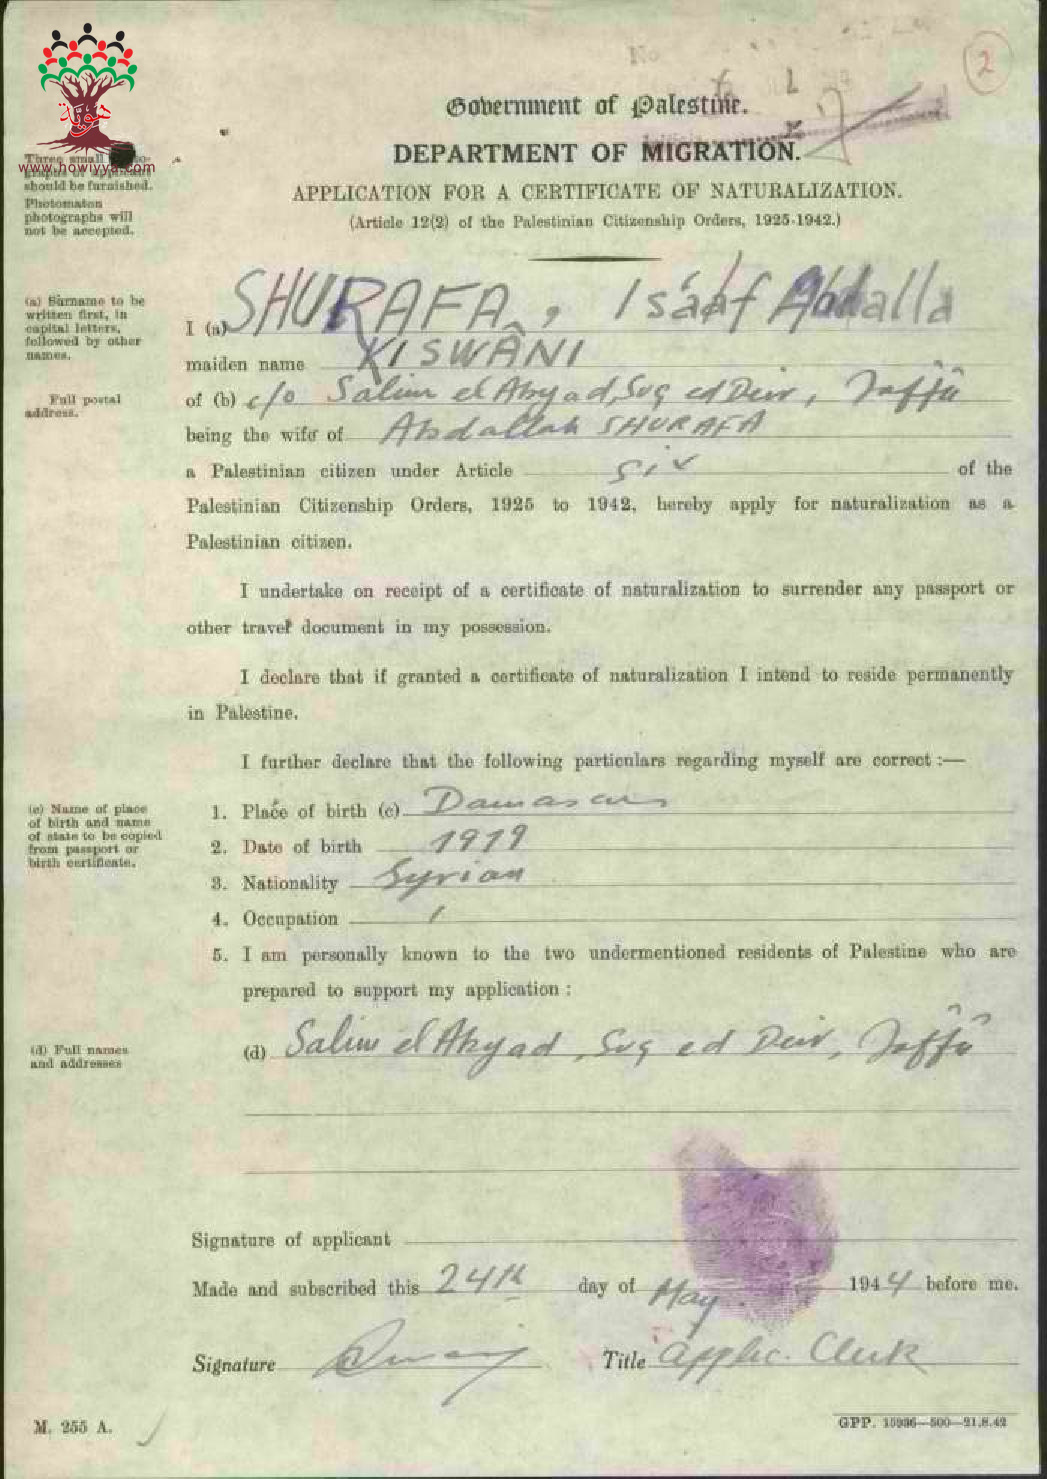 هوية
www.howiyya.com
No
2
Government of Palestine.
DEPARTMENT OF MIGRATION.
APPLICATION FOR A CERTIFICATE OF NATURALIZATION.
(Article 12(2) of the Palestinian Citizenship Orders, 1925-1942.)
Three small
graphs of applicant
should be furnished.
Photomaton
photographs will
not be accepted.
(a) Surname to be
written first, in
capital letters,
followed by other
names.
I (a) SHURAFA, Isáaf Abdalla
maiden name KISWÂNI
Full postal
address.
of (b) c/o Salim el Abyad, Suq ed Deir, Jaffa
being the wife of Abdallah SHURAFA
a Palestinian citizen under Article six of the
Palestinian Citizenship Orders, 1925 to 1942, hereby apply for naturalization as a
Palestinian citizen.
I undertake on receipt of a certificate of naturalization to surrender any passport or
other travel document in my possession.
I declare that if granted a certificate of naturalization I intend to reside permanently
in Palestine.
I further declare that the following particulars regarding myself are correct :—
(c) Name of place
of birth and name
of state to be copied
from passport or
birth certificate.
1. Place of birth (c) Damascus
2. Date of birth 1919
3. Nationality Syrian
4. Occupation /
5. I am personally known to the two undermentioned residents of Palestine who are
prepared to support my application :
(d) Full names
and addresses
(d) Salim el Abyad, Suq ed Deir, Jaffa
Signature of applicant
Made and subscribed this 24th day of May 1944 before me.
Signature
Title Applic. Clerk
M. 255 A.
GPP. 15936—500—21.8.42